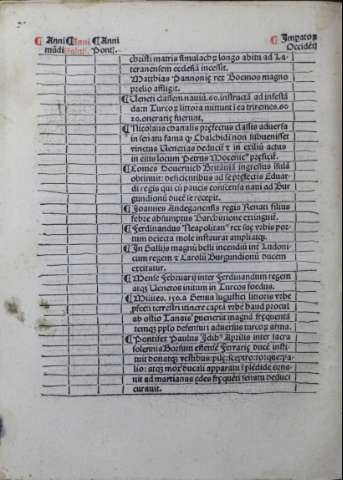 Anni Anni Anni Impator
mūdi salut Pont. Occidēt
christi matris simulachꝝ longo ābitu ad La-
teranensem ecclesiā incessit.
Matthias Pannonię rex Boemos magno
prelio affligit.
Veneti classem nauiū.60.instructā ad infestā
dam Turcos littora mittunt
60.onerarię fuerunt.
Nicolaus canalis prefectus classis aduersa
in senatu fama ꝙ Chalchidi non subuenisset
vinctus Venetias deducit et in exiliū actus
in eius locum Petrus Mocenic preficit.
Comes Vouernich Britāniā ingressus insulā
obtinuit: deficientibus ad se prefectis Eduar
di regis qui cū paucis conscensa naui ad Bur
gundionū ducē se recepit.
Joannes Andeganensis regis Renati filius
febre absumptus Barchinone extinguit.
Ferdinandus Neapolitan rex suę vrbis por-
tum deiecta mole instaurat ampliatqꝫ.
In Gallijs magni belli incendiū int Ludoui
cum regem et Carolū Burgundionū ducem
excitatur.
Mense Februarij inter Ferdinandum regem
atqꝫ Venetos initum in Turcos foedus.
Milites.150.a Genua
pfecti terrestri itinere capta vrbe haud procul
ab ostio Tanais
temqꝫ pplo defenturi aduersus turcoꝝ arma.
Pontifex Paulus Aprilis inter sacra
solennia Borsium estensē Ferrarię ducē insti
tuit donatqꝫ vestibus
lio: atqꝫ mox ducali apparatu splēdide
uit ad martianas ędes frequēti senatu deduci
curauit.